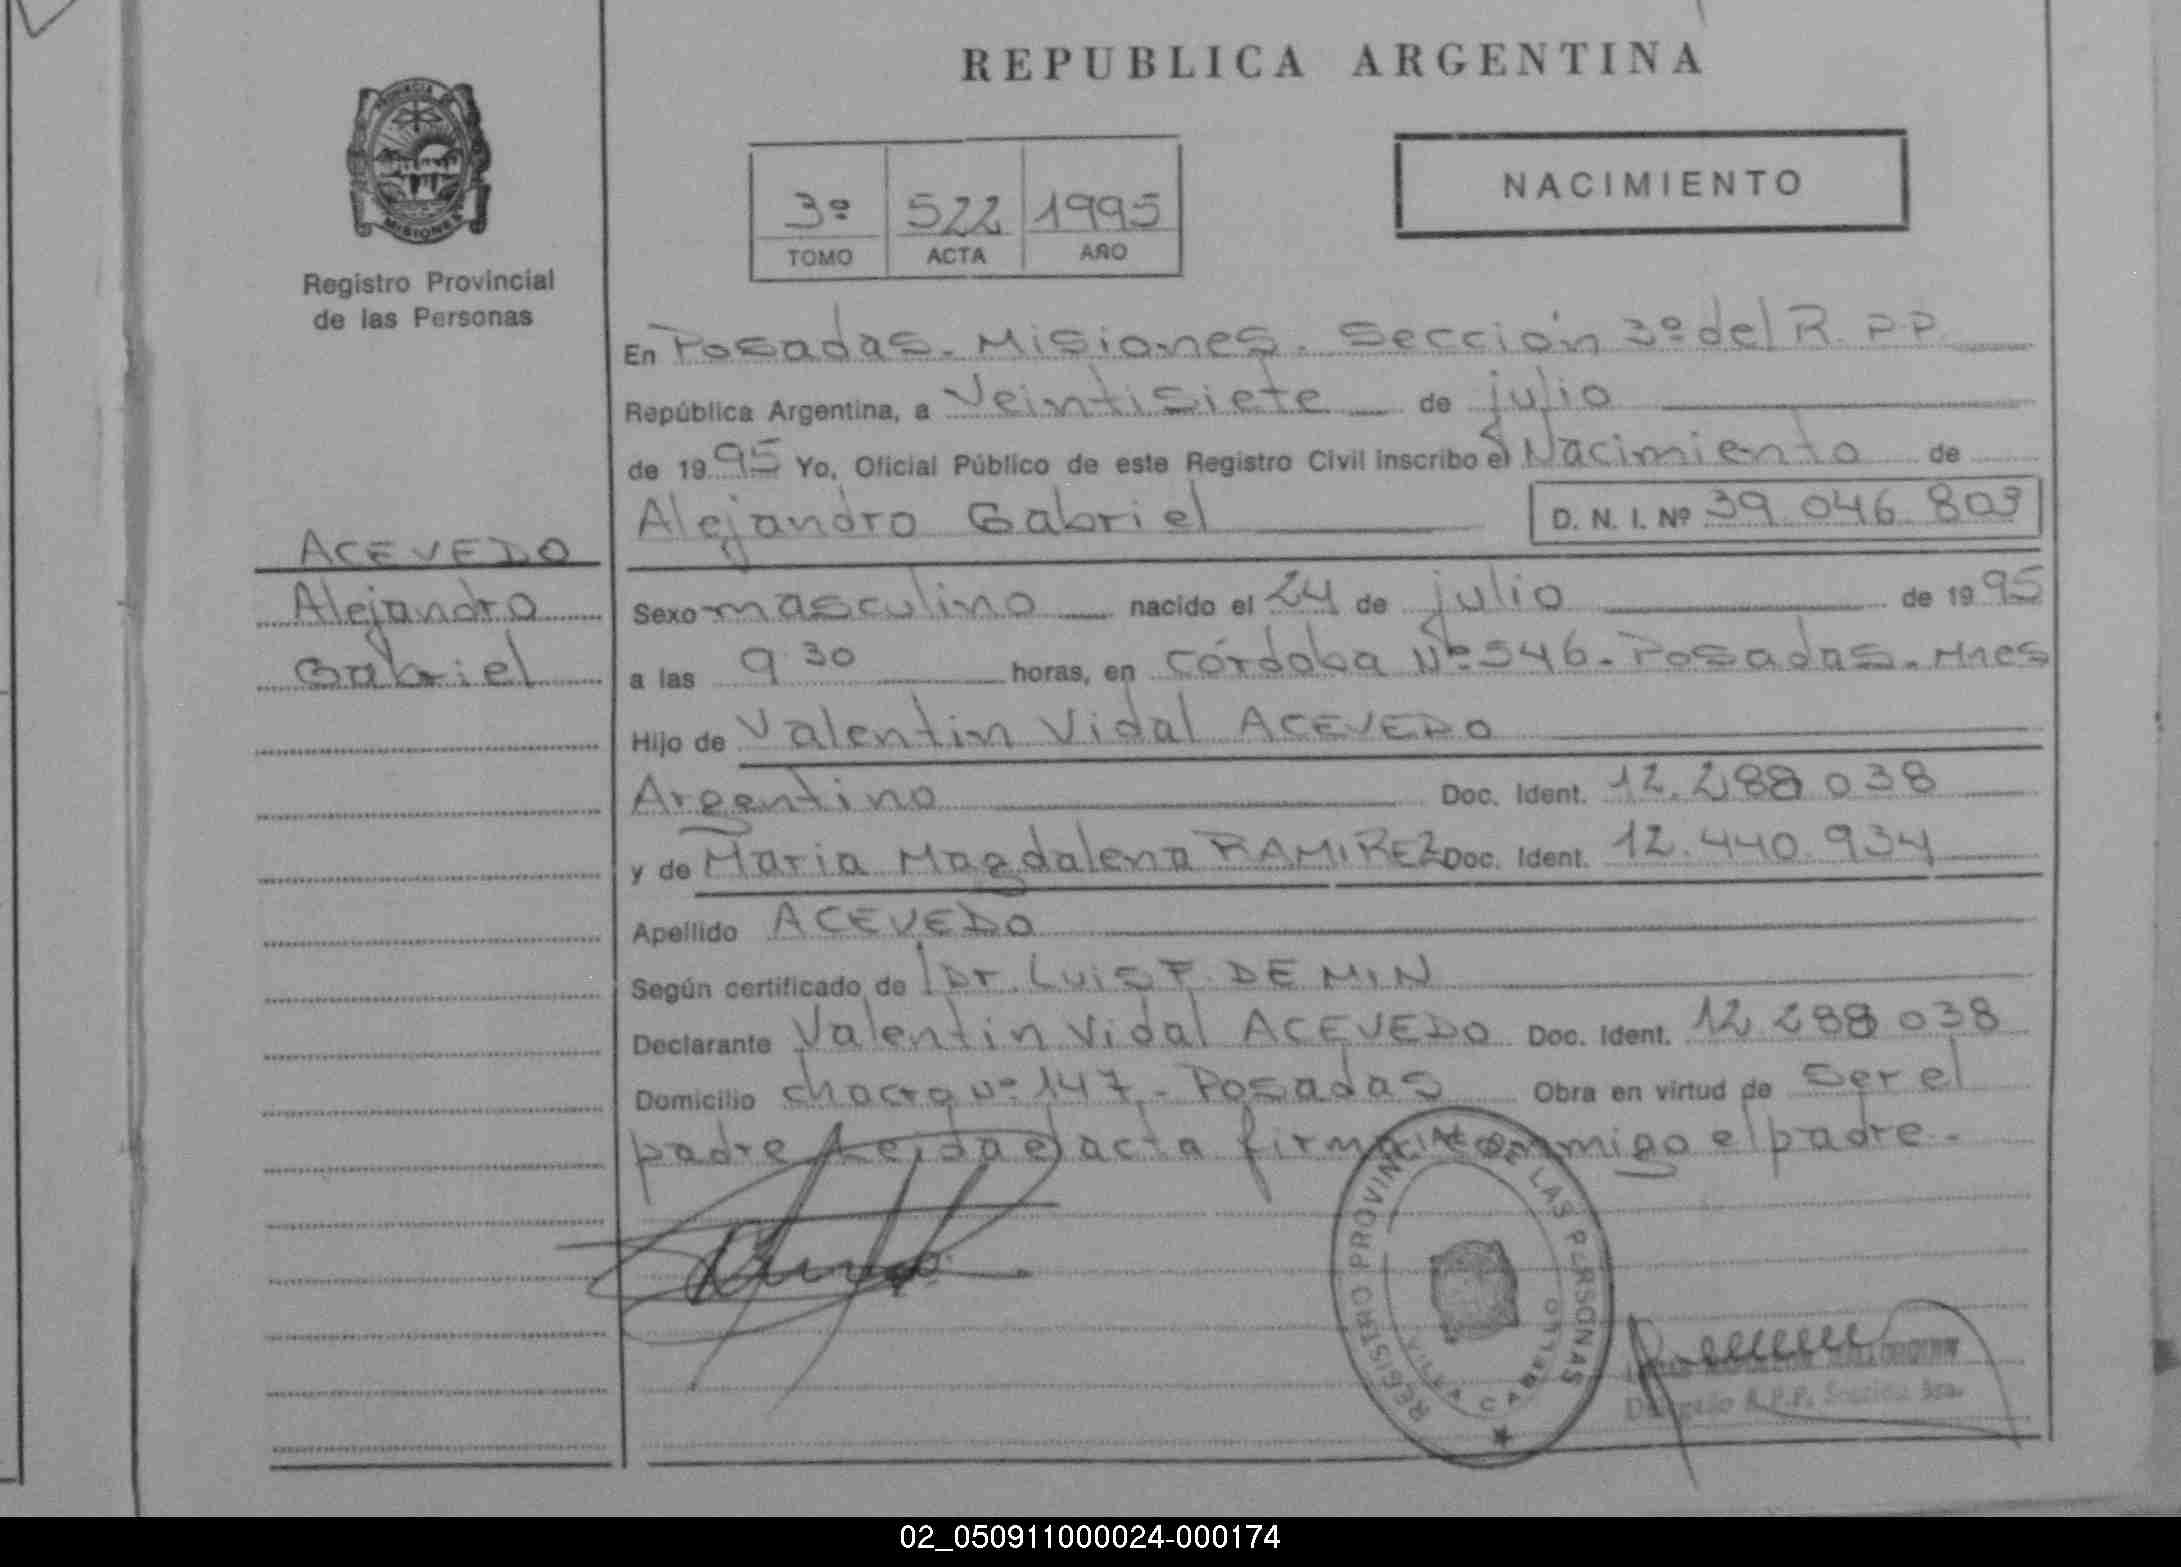 REPUBLICA ARGENTINA
PROVINCIA DE
MISIONES
Registro Provincial
de las Personas
3º 522 1995
TOMO ACTA AÑO
NACIMIENTO
En Posadas. Misiones. Sección 3º del R.P.P.
República Argentina, a Veintisiete de julio
de 1995 Yo, Oficial Público de este Registro Civil inscribo el Nacimiento de
Alejandro Gabriel D. N. I. Nº 39.046.803
ACEVEDO
Alejandro
Gabriel
Sexo masculino nacido el 24 de julio de 1995
a las 9.30 horas, en Córdoba Nº 546. Posadas. Mnes
Hijo de Valentin Vidal ACEVEDO
Argentino Doc. Ident. 12.288.038
y de Maria Magdalena RAMIREZ Doc. Ident. 12.440.934
Apellido ACEVEDO
Según certificado de Dr. Luis F. DE MIN
Declarante Valentin Vidal ACEVEDO Doc. Ident. 12.288.038
Domicilio chacra Nº 147 - Posadas Obra en virtud de ser el
padre Leida el acta firma conmigo el padre.
REGISTRO PROVINCIAL DE LAS PERSONAS
Delegado R.P.P. Sección 3ra.
02_050911000024-000174